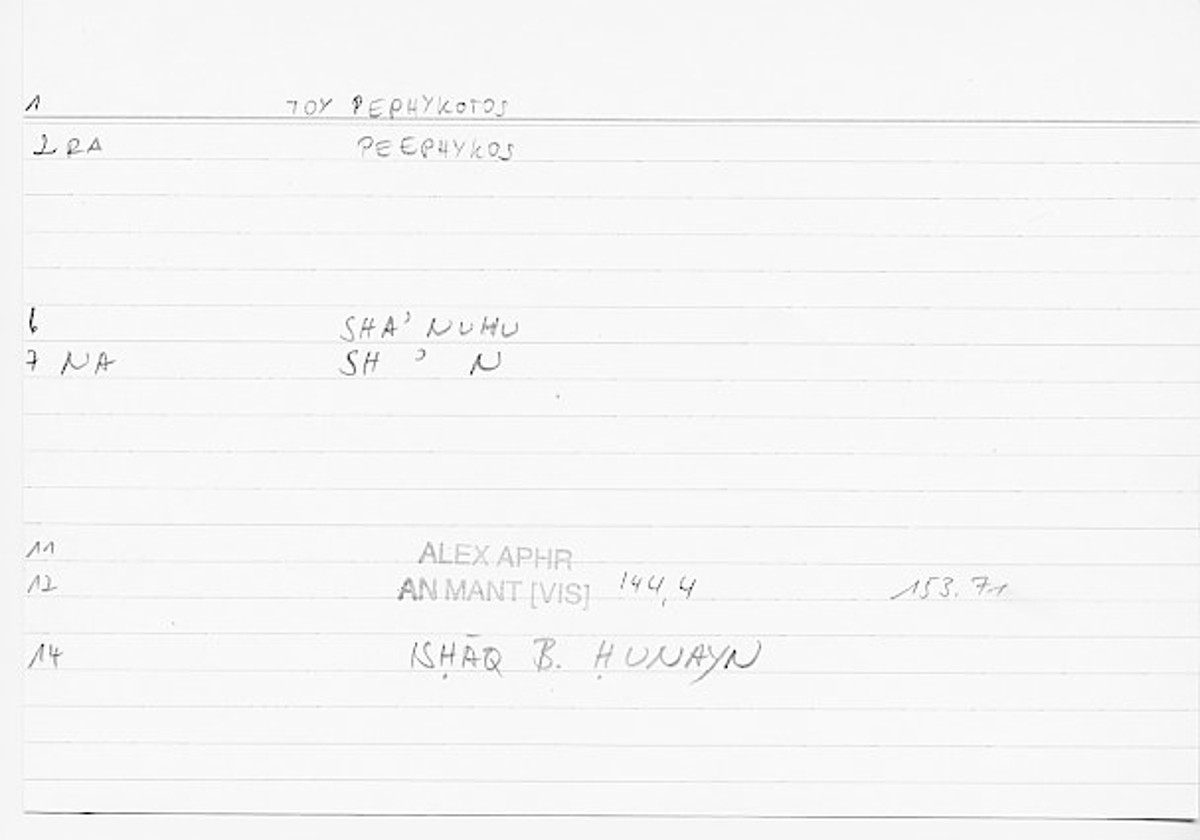 1 TOY PEPHYKOTOS
2 RA PEEPHYKOS
6 SHA' NUHU
7 NA SH ' N
11 ALEX APHR
12 AN MANT [VIS] 144,4 153.71
14 ISḤĀQ B. ḤUNAYN